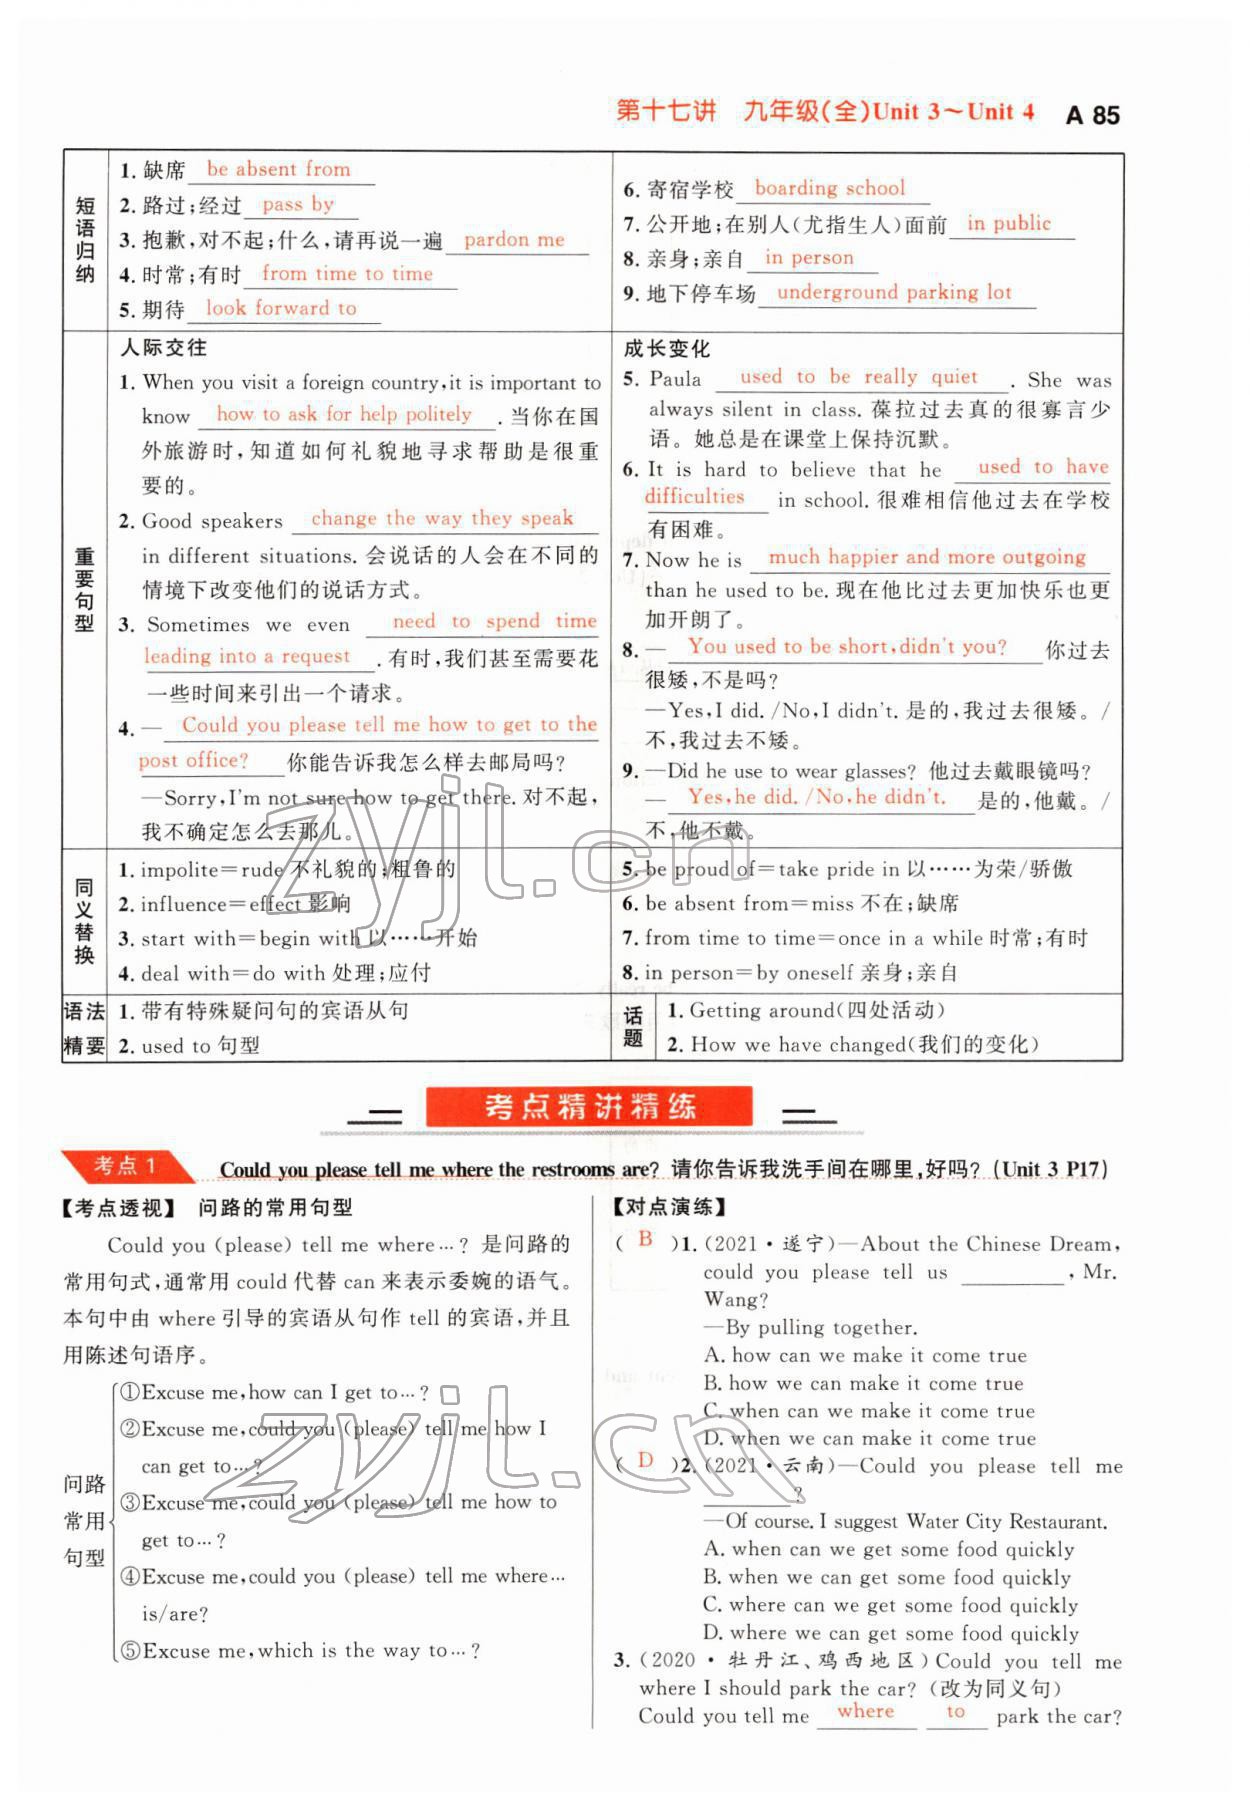 第十七讲 九年级(全)Unit 3～Unit 4 A 85
短语归纳
1. 缺席 be absent from
2. 路过;经过 pass by
3. 抱歉,对不起;什么,请再说一遍 pardon me
4. 时常;有时 from time to time
5. 期待 look forward to
6. 寄宿学校 boarding school
7. 公开地;在别人(尤指生人)面前 in public
8. 亲身;亲自 in person
9. 地下停车场 underground parking lot
重要句型
人际交往
1. When you visit a foreign country,it is important to
know how to ask for help politely .当你在国
外旅游时,知道如何礼貌地寻求帮助是很重
要的。
2. Good speakers change the way they speak
in different situations. 会说话的人会在不同的
情境下改变他们的说话方式。
3. Sometimes we even need to spend time
leading into a request .有时,我们甚至需要花
一些时间来引出一个请求。
4. — Could you please tell me how to get to the
post office? 你能告诉我怎么样去邮局吗?
—Sorry,I'm not sure how to get there. 对不起,
我不确定怎么去那儿。
成长变化
5. Paula used to be really quiet . She was
always silent in class. 葆拉过去真的很寡言少
语。她总是在课堂上保持沉默。
6. It is hard to believe that he used to have
difficulties in school. 很难相信他过去在学校
有困难。
7. Now he is much happier and more outgoing
than he used to be. 现在他比过去更加快乐也更
加开朗了。
8. — You used to be short,didn't you? 你过去
很矮,不是吗?
—Yes,I did. /No,I didn't. 是的,我过去很矮。/
不,我过去不矮。
9. —Did he use to wear glasses? 他过去戴眼镜吗?
— Yes,he did. /No,he didn't. 是的,他戴。/
不,他不戴。
同义替换
1. impolite=rude 不礼貌的;粗鲁的
2. influence=effect 影响
3. start with=begin with 以……开始
4. deal with=do with 处理;应付
5. be proud of=take pride in 以……为荣/骄傲
6. be absent from=miss 不在;缺席
7. from time to time=once in a while 时常;有时
8. in person=by oneself 亲身;亲自
语法精要
1. 带有特殊疑问句的宾语从句
2. used to 句型
话题
1. Getting around(四处活动)
2. How we have changed(我们的变化)
考点精讲精练
考点 1 Could you please tell me where the restrooms are? 请你告诉我洗手间在哪里,好吗? (Unit 3 P17)
【考点透视】 问路的常用句型
Could you (please) tell me where…? 是问路的
常用句式,通常用 could 代替 can 来表示委婉的语气。
本句中由 where 引导的宾语从句作 tell 的宾语,并且
用陈述句语序。
问路常用句型
①Excuse me,how can I get to…?
②Excuse me,could you (please) tell me how I
can get to…?
③Excuse me,could you (please) tell me how to
get to…?
④Excuse me,could you (please) tell me where…
is/are?
⑤Excuse me,which is the way to…?
【对点演练】
( B )1. (2021·遂宁)—About the Chinese Dream,
could you please tell us ________, Mr.
Wang?
—By pulling together.
A. how can we make it come true
B. how we can make it come true
C. when can we make it come true
D. when we can make it come true
( D )2. (2021·云南)—Could you please tell me
________?
—Of course. I suggest Water City Restaurant.
A. when can we get some food quickly
B. when we can get some food quickly
C. where can we get some food quickly
D. where we can get some food quickly
3. (2020·牡丹江、鸡西地区)Could you tell me
where I should park the car? (改为同义句)
Could you tell me where to park the car?
zyjl.cn
zyjl.cn